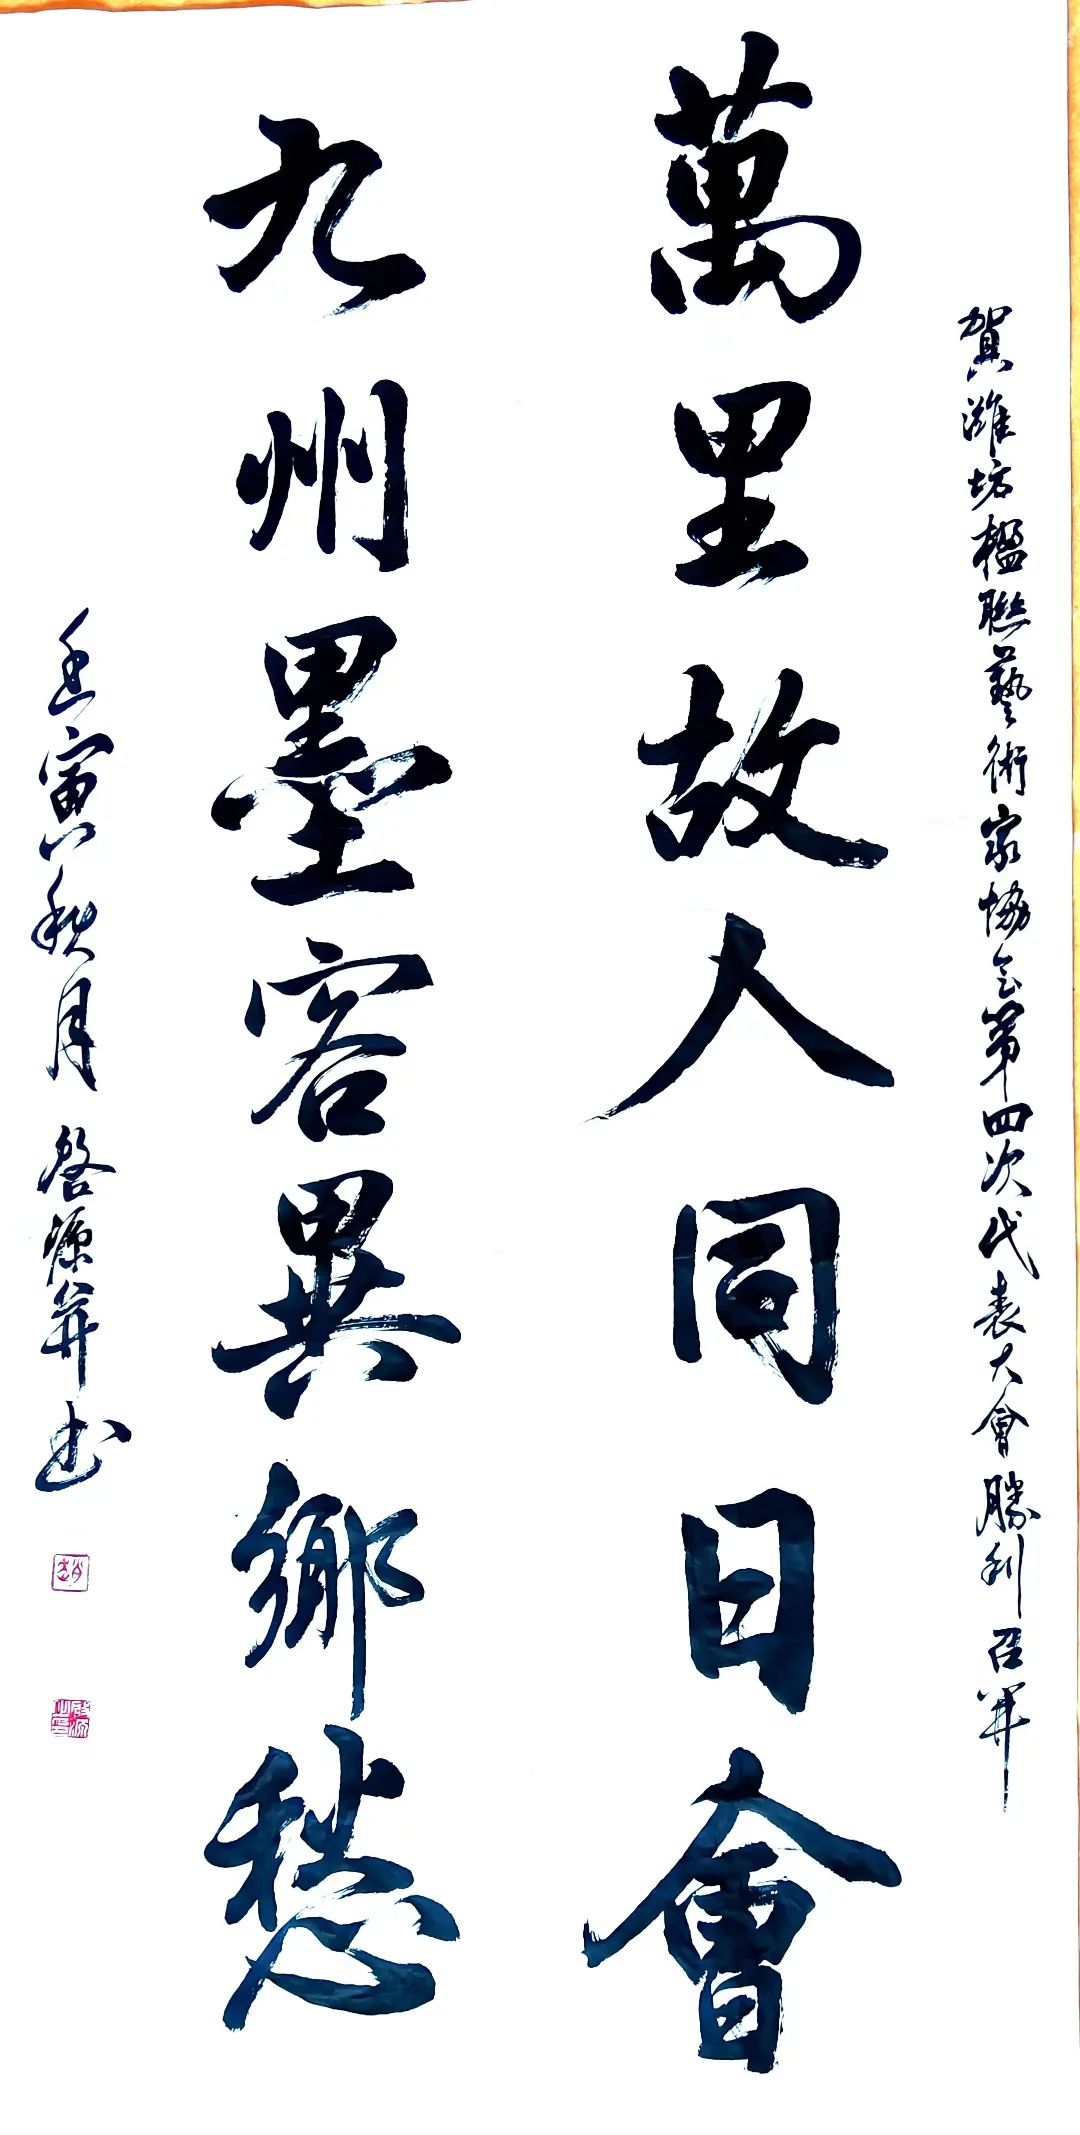 賀濰坊楹聯藝術家協会第四次代表大會勝利召開
萬里故人同日會
九州墨客異鄉愁
壬寅秋月 啓源并书
趙